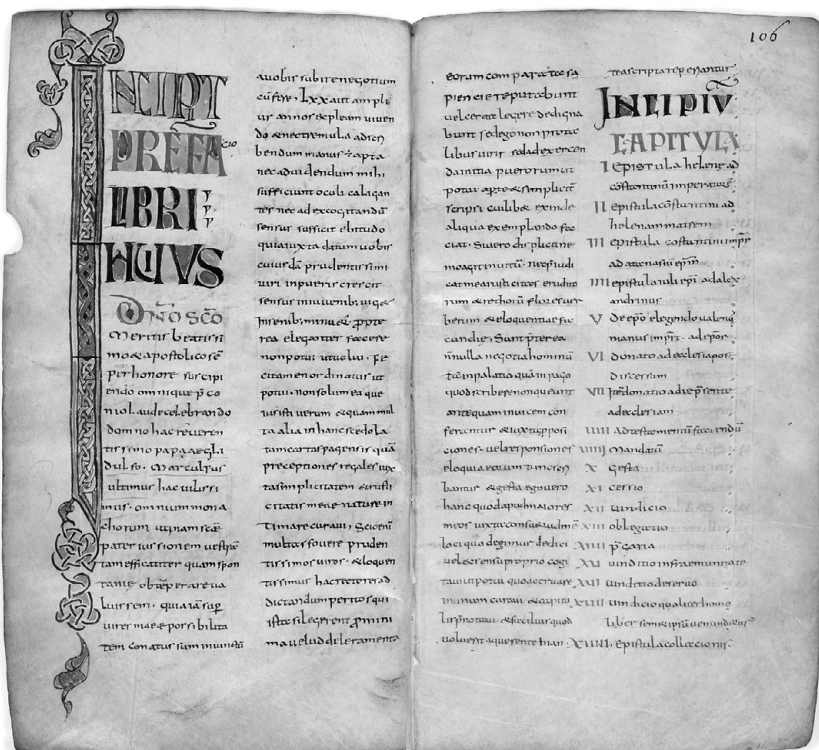 INCIPIT
PREFA cio
LIBRI
HUIUS
Dño sc̄o
Meritis beatissi
mo & apostolico sē
pir honore suscipi
endo omnique p̄ co
niol. aude celebrando
domno hac reveren
tissimo papa aegli
dulfo. Marculfus
ultimus hac vilissi
mus. omnium mona
chorum. utinam scāe
pater iussionem vestrā
tam efficatiter quam spon
tanie obtēperare va
luissem. quia iā sup̄
vires meae possibilita
tem conatus sum iniunctū
a vobis subire negotium
cū fere. Lxx aut ampli
us annos expleam viven
do & nec tremula ad scri
bendum manus ÷ apta
nec ad videndum mihi
sufficiunt oculi caligan
tes nec ad excogitandū
sensus sufficit ebitudo
quia iuxta datum vobis
cuiusdā prudentissimi
viri in pueris crescit
sensus in iuvenibi viget
in senib; minuit̄ propte
rea eleganter facere
non potui ut volui. fe
ci tamen ordinatus ut
potui. non solum ea que
iusisti verum & quam mul
ta alia in hanc scedola
tam cartas pagensis quā
preceptiones regales iux
ta simplicitatem & rusti
citatis meae nature in
timare curavi. Scio enī
multos fore pruden
tissimos viros. & eloquen
tissimus hac rectores ad
dictandum peritos qui
ista si legerent pro mini
ma velud dileramenta
106
eorum comparate sa
piencie reputabunt
vel certe legere dedigna
bunt sed ego non pro tale
libus viris sed ad exercen
da initia puerorum ut
potui apte & simpliciter
scripsi cui libeat exinde
aliqua exemplando fa
ciat. Si vero displicine
mo agit invitū. neque iudi
cat mea rusticitas erudito
rum & rethorū flores ver
borum & eloquentiae fa
cundie. Sunt preterea
nnulla negotia hominū
tā in palatio quam in pago
quod scribere non queunt
antequam invicem con
ferantur & iuxta p̄posi
ciones. vel responsiones
eloquia eorum tunc scri
bantur & gesta ego vero
hanc quod apud maiores
meos iuxta consuetudinē
loci quo degimus dedici
vel ex sensu proprio cogi
tavi ut potui quoacervare
in unum curavi & capitu
la p̄notavi & facilius quod
voluerit a quaesente inan
teascripta repperiantur
INCIPIŪ
CAPITULA
I Epistula helene ad
costantinum imperatorē
II epistula cōstantini ad
helenam matrem
III Epistula costantini impr
ad atonasiū epm
IIII epistula iulii epi ad alex
andrinus
V De epo elegendo valenq
manus impr̄. ad epos
VI Donato ad ecclesia post
discessum
VII Ite donatio ad die p̄sente
ad ecclesiam
VIII Ad testamentū faciendū
VIIII Mandatū
X Gesta
XI cessio
XII vindicio
XIII obligatio
XIIII p̄caria
XV vinditio infra emunitate
XVI vinditio de servo
XVII vindicio qualiter homo
liber semetipsū venundavit
XVIII. Epistula colleccionis